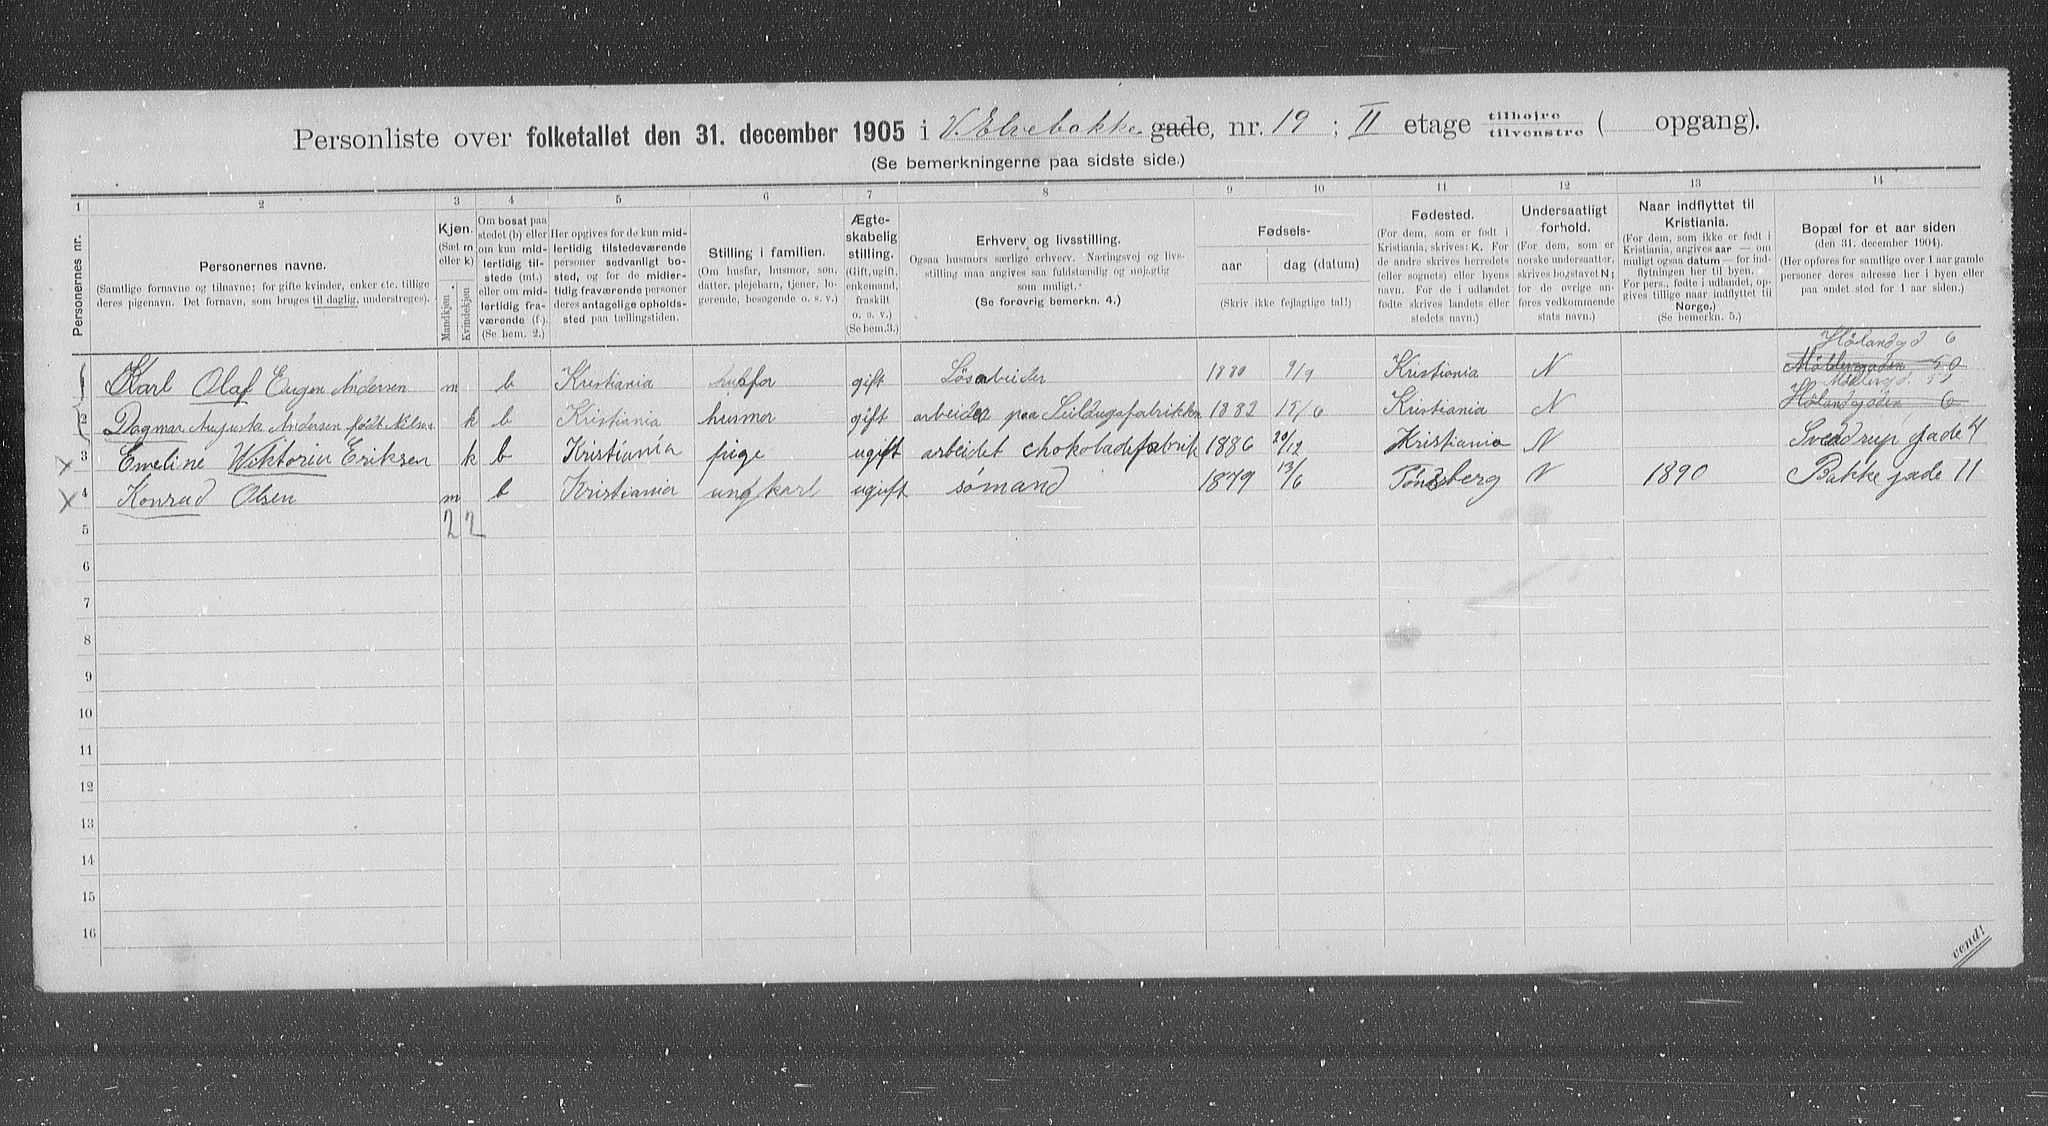 Personliste over folketallet den 31. december 1905 i V. Elvebakke gade, nr. 19 ; II etage tilhøjre tilvenstre ( opgang).
(Se bemerkningerne paa sidste side.)
1 2 3 4 5 6 7 8 9 10 11 12 13 14
Personernes nr.
Personernes navne.
(Samtlige fornavne og tilnavne; for gifte kvinder, enker etc. tillige deres pigenavn. Det fornavn, som bruges til daglig, understreges).
Kjøn. (Sæt m eller k) Mandkjøn. Kvindekjøn
Om bosat paa stedet (b) eller om kun midlertidig tilstede (mt.) eller om midlertidig fraværende (f.) (Se bem. 2.)
Her opgives for de kun midlertidig tilstedeværende personer sedvanligt bosted, og for de midlertidig fraværende personer deres antagelige opholdssted paa tællingstiden.
Stilling i familien. (Om husfar, husmor, søn, datter, plejebarn, tjener, logerende, besøgende o. s. v.)
Ægteskabelig stilling. (Gift, ugift, enkemand, fraskilt o. s. v.) (Se bem. 3.)
Erhverv og livsstilling. Ogsaa husmors særlige erhverv. Næringsvej og livsstilling maa angives saa fuldstændig og nøjagtig som muligt. (Se forøvrig bemerkn. 4.)
Fødsels- aar dag (datum) (Skriv ikke fejlagtige tal!)
Fødested. (For dem, som er født i Kristiania, skrives: K. For de andre skrives herredets (eller sognets) eller byens navn. For de i udlandet fødte skrives landets eller stedets navn.)
Undersaatligt forhold. (For dem, som er norske undersaatter, skrives bogstavet N; for de øvrige angives vedkommende stats navn.)
Naar indflyttet til Kristiania. (For dem, som ikke er født i Kristiania, angives aar — om muligt ogsaa datum — for indflytningen her til byen. For pers., fødte i udlandet, opgives tillige naar indflyttet til Norge.) (Se bemerkn. 5.)
Bopæl for et aar siden (den 31. december 1904). (Her opføres for samtlige over 1 aar gamle personer deres adresse her i byen eller paa andet sted for 1 aar siden.)
Hølandgd 6
1 Karl Olaf Eugen Andersen m b Kristiania husfar gift Løsarbeider 1880 9/9 Kristiania N Møllergaden 50
Møllergd. 50
2 Dagmar Augusta Andersen født Nilsen k b Kristiania husmor gift arbeider paa Seildugsfabrikken 1882 15/6 Kristiania N Hølandgaden 6
x 3 Emeline Wiktoria Eriksen k b Kristiania pige ugift arbeidet chokoladefabrik 1886 20/12 Kristiania N Sverdrup gade 4
x 4 Konrad Olsen m b Kristiania ungkarl ugift sømand 1879 13/6 Tønsberg N 1890 Bakke gade 11
5 2 2
6
7
8
9
10
11
12
13
14
15
16
vend!